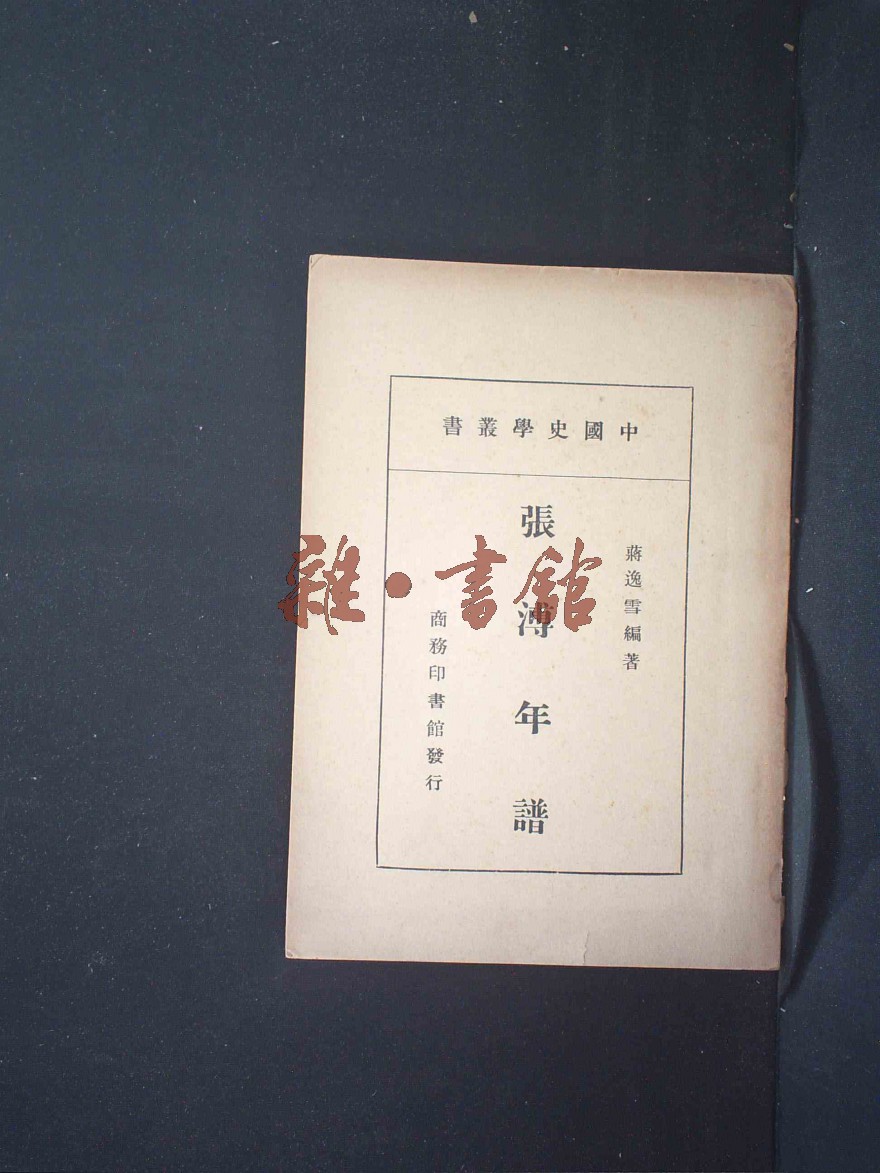 中國史學叢書
蔣逸雪編著
張溥年譜
商務印書館發行
雜·書館